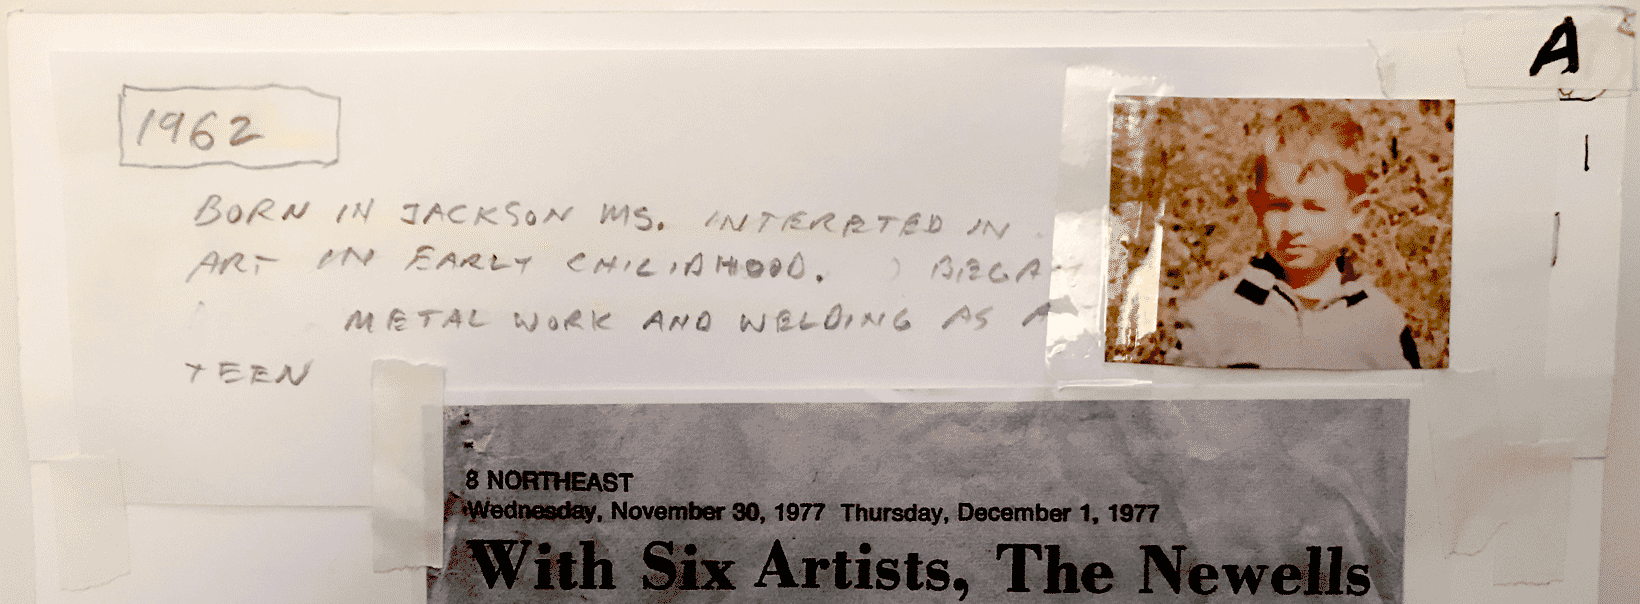 A
1962
BORN IN JACKSON MS. INTERETED IN
ART IN EARLY CHILIDHOOD. BEGAN
METAL WORK AND WELDING AS A
TEEN
8 NORTHEAST
Wednesday, November 30, 1977 Thursday, December 1, 1977
With Six Artists, The Newells